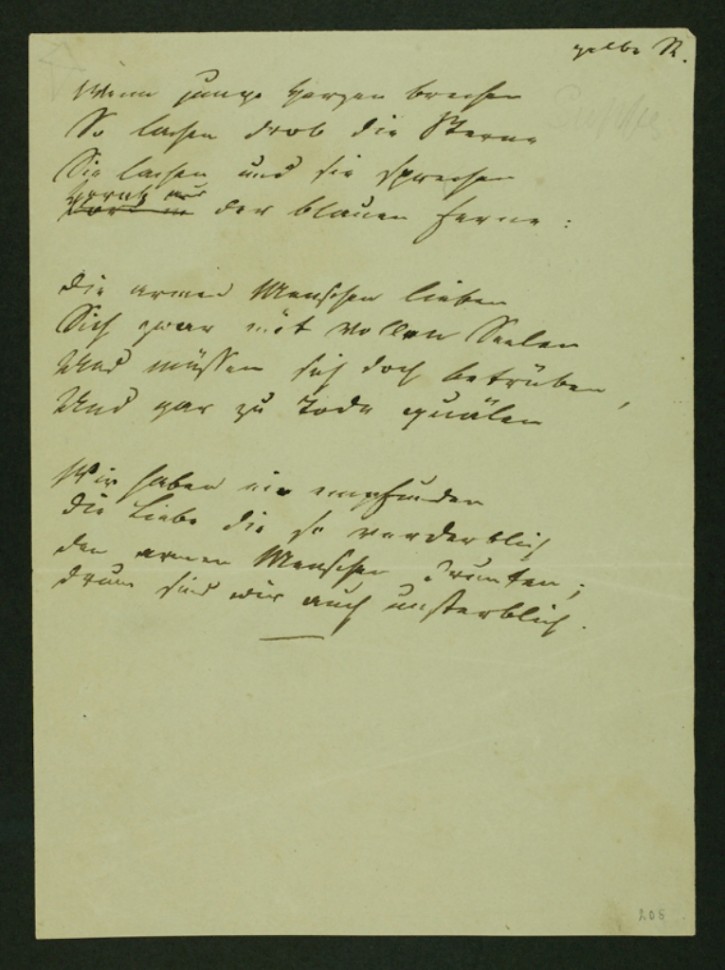 gelbe R.
Wenn junge Herzen brechen
So lachen drob die Sterne
Sie lachen und sie sprechen
Herab aus
der blauen Ferne:
Die armen Menschen lieben
Sich zwar mit vollen Seelen
Und müssen sich doch betrüben,
Und gar zu Tode quälen
Wir haben nie empfunden
Die Liebe die so verderblich
den armen Menschen drunten;
drum sind wir auch unsterblich.
208